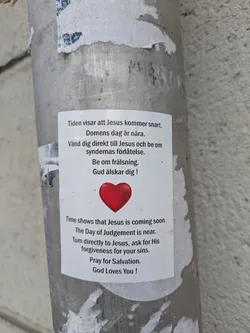 Tiden visar att Jesus kommer snart.
Domens dag är nära.
Vänd dig direkt till Jesus och be om
syndernas förlåtelse.
Be om frälsning.
Gud älskar dig !
Time shows that Jesus is coming soon.
The Day of Judgement is near.
Turn directly to Jesus, ask for His
forgiveness for your sins.
Pray for Salvation.
God Loves You !